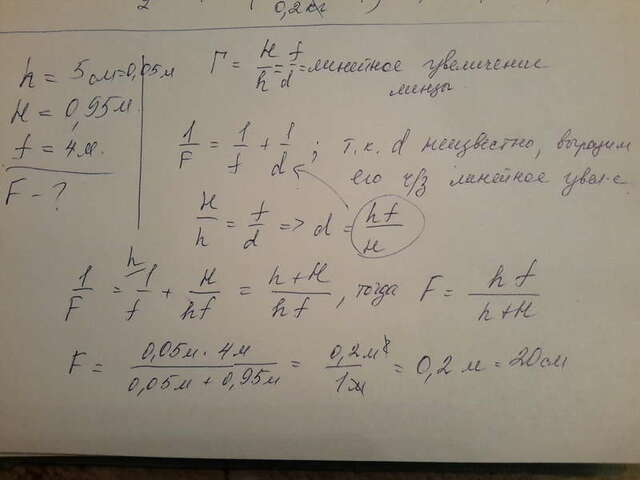 2
0,2кг
h = 5см=0,05м
H = 0,95м.
f = 4м.
F - ?
Г = H/h = f/d = линейное увеличение
линзы
1/F = 1/f + 1/d ; т.к. d неизвестно, выразим
его ч/з линейное увел-е
H/h = f/d => d = hf/H
1/F = h/1/f + H/hf = h+H/hf , тогда F = hf/h+H
F = 0,05м · 4м/0,05м + 0,95м = 0,2м²/1м = 0,2м = 20см